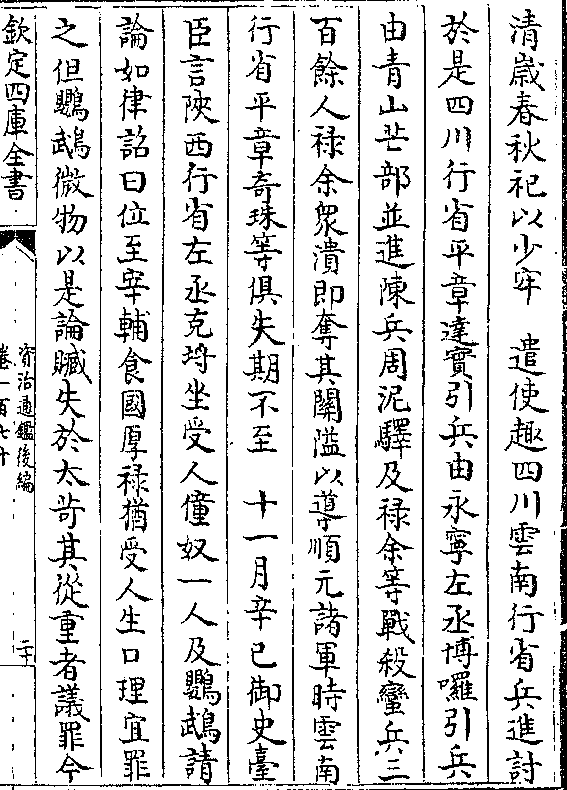 清歲春秋祀以少牢　遣使趣四川雲南行省兵進討
於是四川行省平章達實引兵由永寧左丞博囉引兵
由青山芒部並進陳兵周泥驛及禄余等戰殺蠻兵三
百餘人禄余衆潰即奪其關隘以導順元諸軍時雲南
行省平章竒珠等俱失期不至　十一月辛巳御史臺
臣言陜西行省左丞克埒坐受人僮奴一人及鸚鵡請
論如律詔曰位至宰輔食國厚禄猶受人生口理宜罪
之但鸚鵡微物以是論贓失於太苛其從重者議罪今
欽定四庫全書
資治通鑑後編
卷一百七十
二十